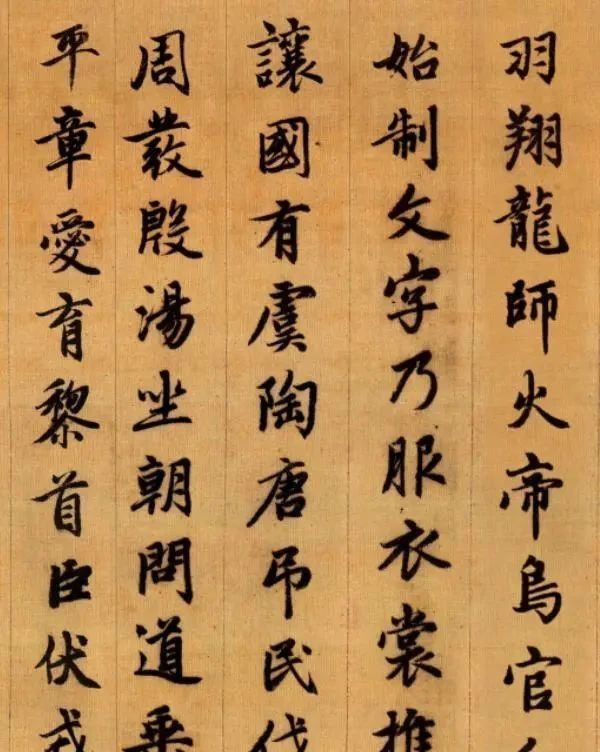 羽翔龍師火帝鳥官
始制文字乃服衣裳推
讓國有虞陶唐吊民伐
周發殷湯坐朝問道垂
平章愛育黎首臣伏戎